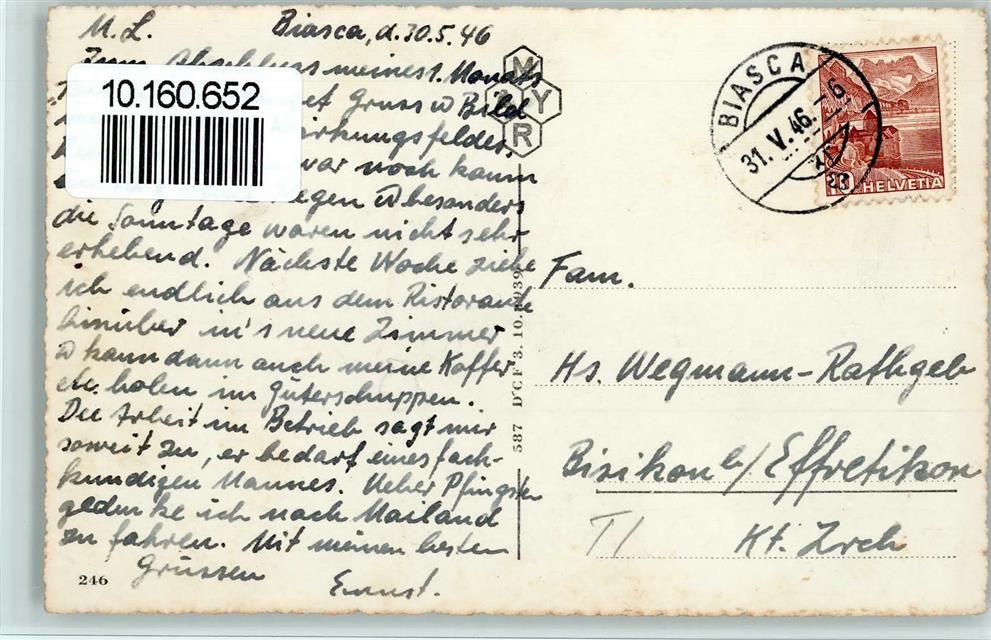 M. L. Biasca, d. 30.5.46
Zum Abschluss meines 1. Monats
Gruss & Bild
Wirkungsfelder,
war noch kaum
Regen & besonders
die Sonntage waren nicht sehr
erhebend. Nächste Woche ziehe
ich endlich aus dem Ristorante
hinüber in's neue Zimmer
& kann dann auch meine Koffer
etc. holen im Güterschuppen.
Die Arbeit im Betrieb sagt mir
soweit zu, er bedarf eines fach-
kundigen Mannes. Ueber Pfingsten
gedenke ich nach Mailand
zu fahren. Mit meinen besten
Grüssen
Ernst.
246
10.160.652
M
Y
R
587 D'CF 3. 10. 1939
BIASCA
31. V. 46. - 6
10 HELVETIA
Fam.
Hs. Wegmann-Rathgeb
Bisikon b/ Effretikon
TI Kt. Zrch